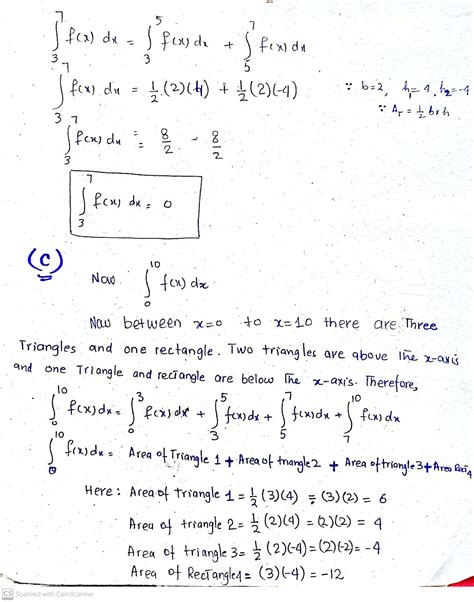 ∫₃⁷ f(x) dx = ∫₃⁵ f(x) dx + ∫₅⁷ f(x) dx
∫₃⁷ f(x) dx = 1/2 (2)(4) + 1/2 (2)(-4) ∵ b=2, h₁=4, h₂=-4
∵ A_T = 1/2 b×h
∫₃⁷ f(x) dx = 8/2 - 8/2
∫₃⁷ f(x) dx = 0
(C)
Now ∫₀¹⁰ f(x) dx
Now between x=0 to x=10 there are Three
Triangles and one rectangle. Two triangles are above the x-axis
and one Triangle and rectangle are below the x-axis. Therefore,
∫₀¹⁰ f(x) dx = ∫₀³ f(x) dx + ∫₃⁵ f(x) dx + ∫₅⁷ f(x) dx + ∫₇¹⁰ f(x) dx
∫₀¹⁰ f(x) dx = Area of Triangle 1 + Area of triangle 2 + Area of triangle 3 + Area Rect 4
Here : Area of triangle 1 = 1/2 (3)(4) = (3)(2) = 6
Area of triangle 2 = 1/2 (2)(4) = (2)(2) = 4
Area of triangle 3 = 1/2 (2)(-4) = (2)(-2) = -4
Area of Rectangle 4 = (3)(-4) = -12
CS Scanned with CamScanner